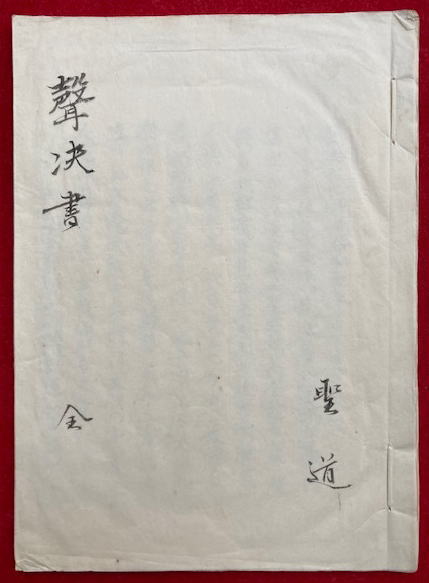 聲决書
全
聖道